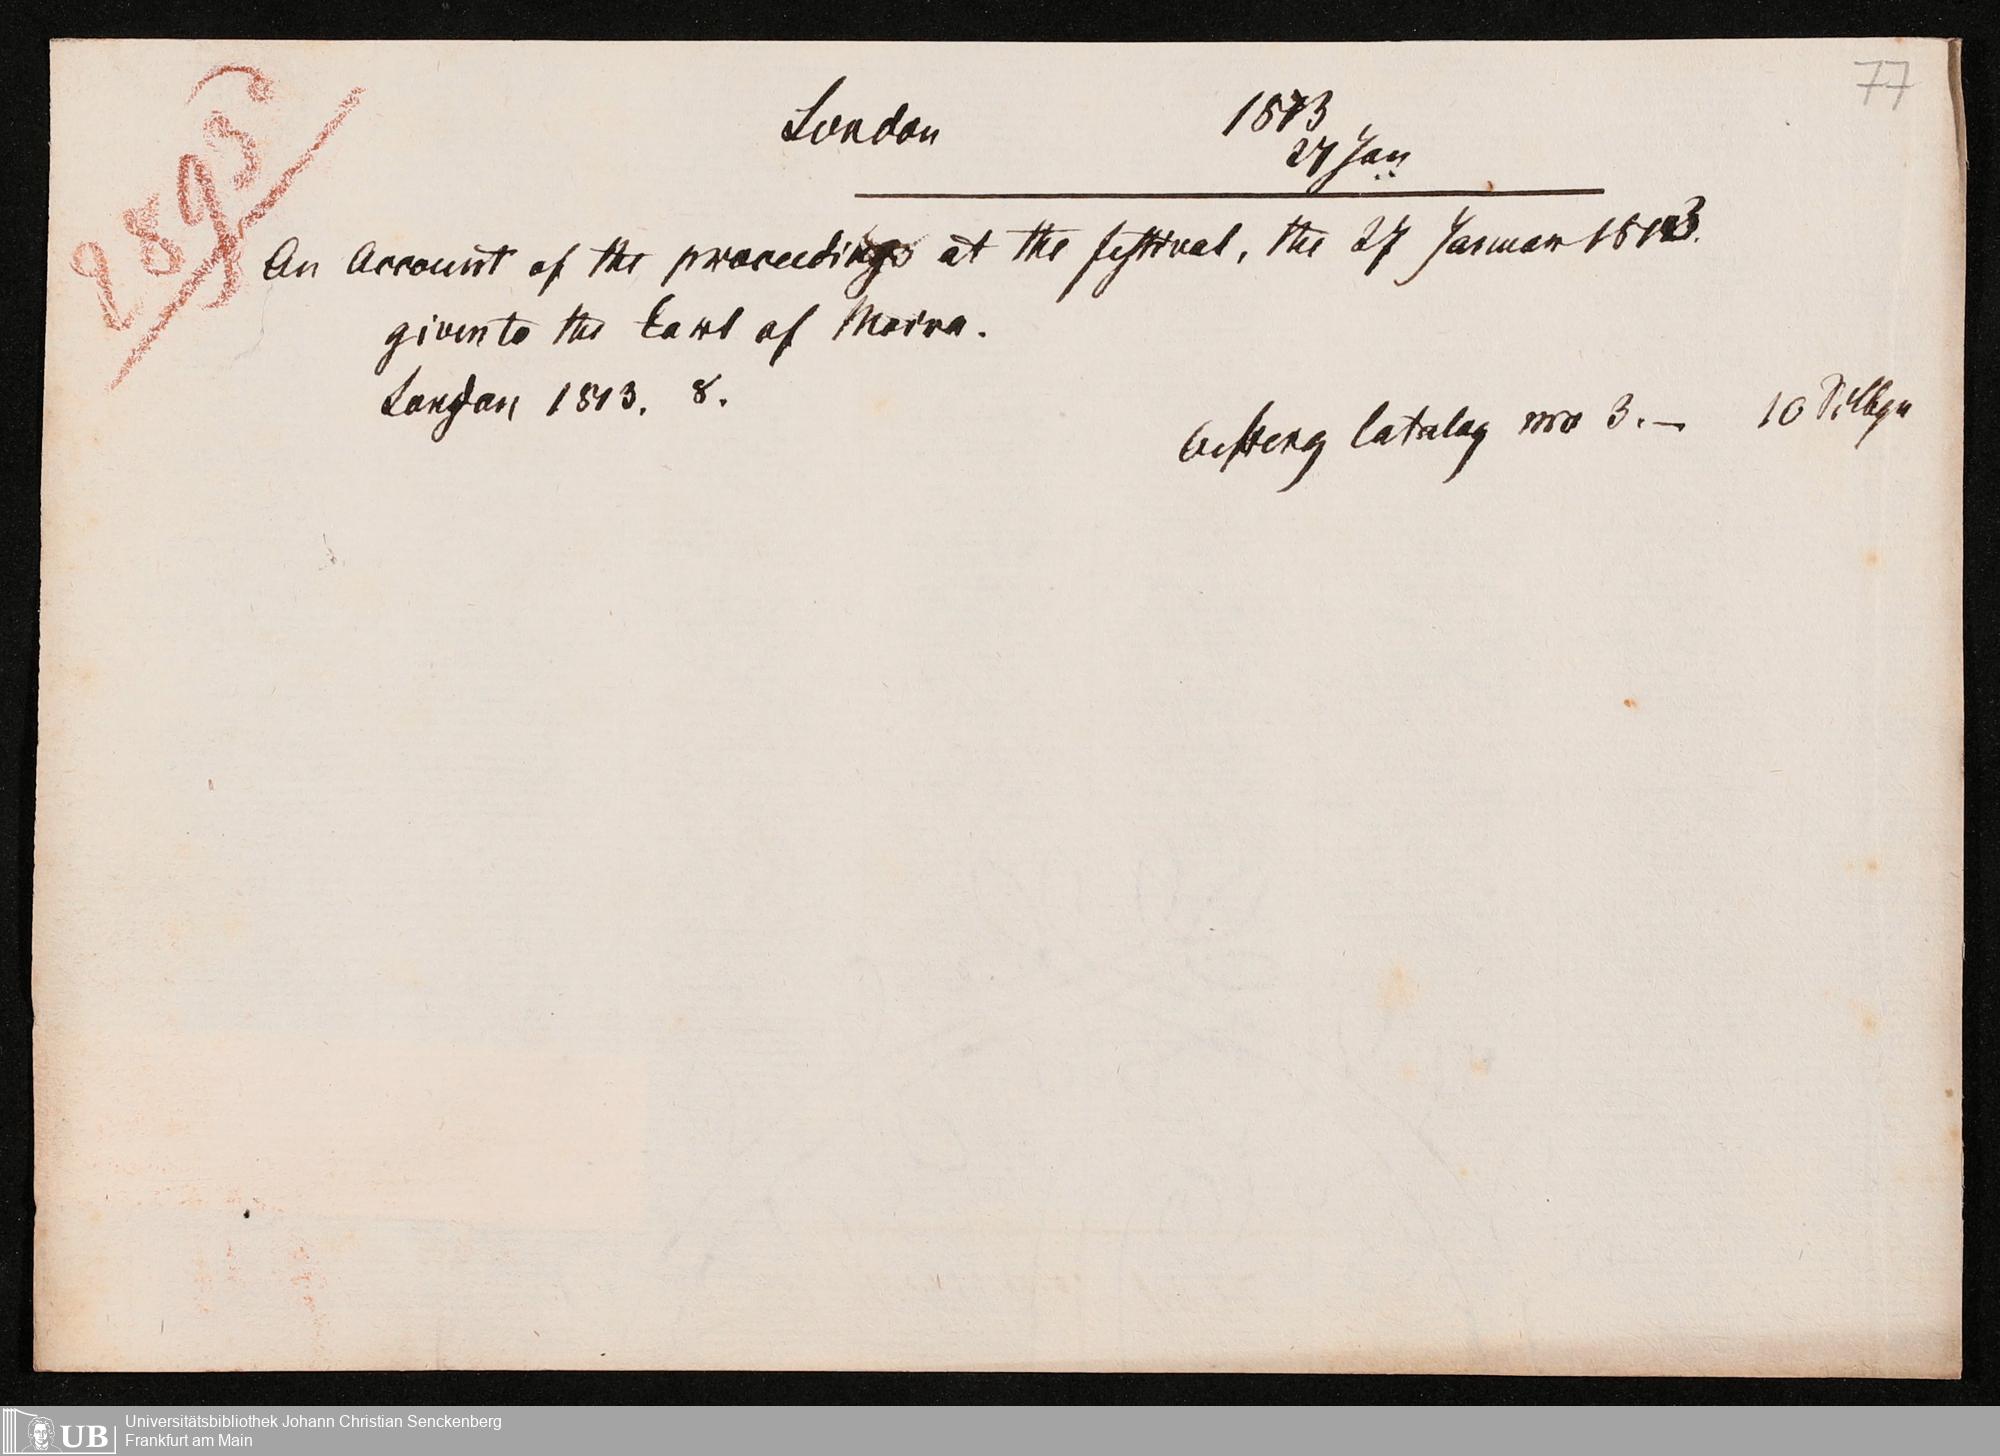 77
2895
London 1813
27 Jan
An Account of the proceedings at the festival, the 27 Januar 1813.
given to the Earl of Moira.
London 1813. 8.
Catalog nro 3. — 10 Silbgr
UB
Universitätsbibliothek Johann Christian Senckenberg
Frankfurt am Main